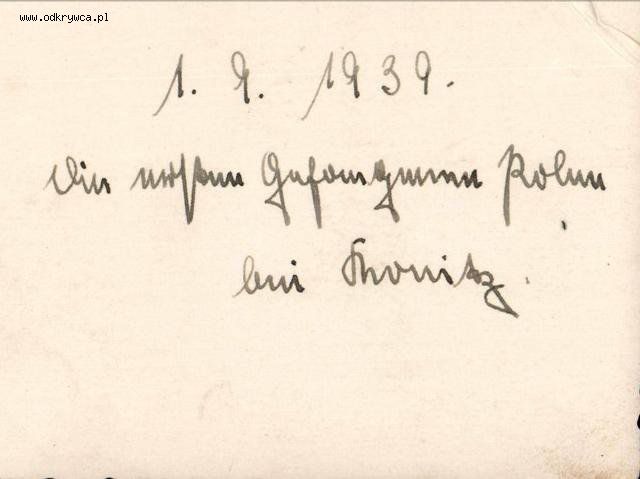 www.odkrywca.pl
1. 9. 1939.
Die ersten Gefangenen Polen
bei Konitz.